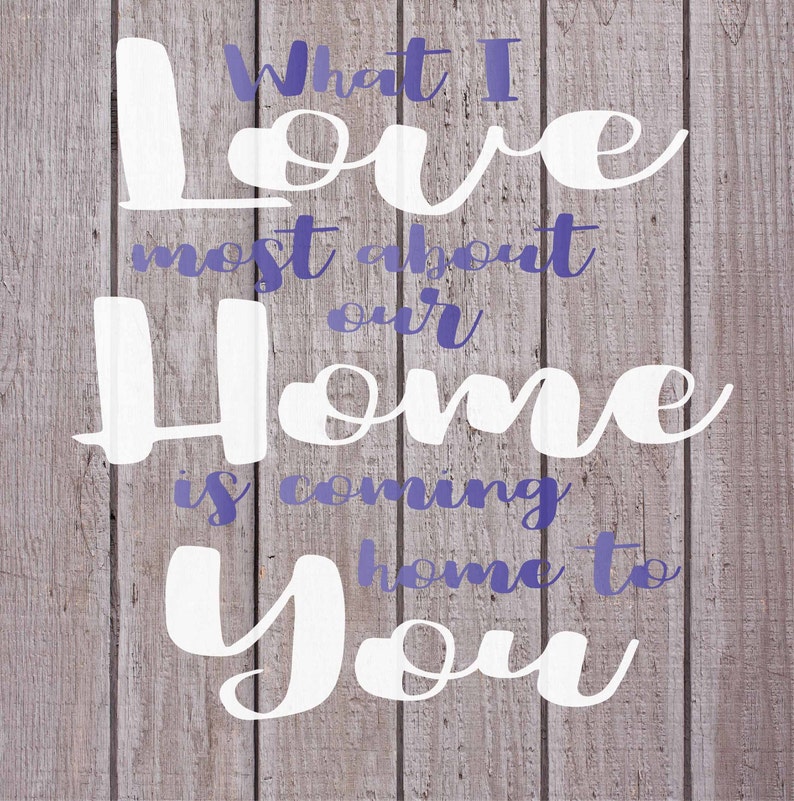 What I
Love
most about
our
Home
is coming
home to
You